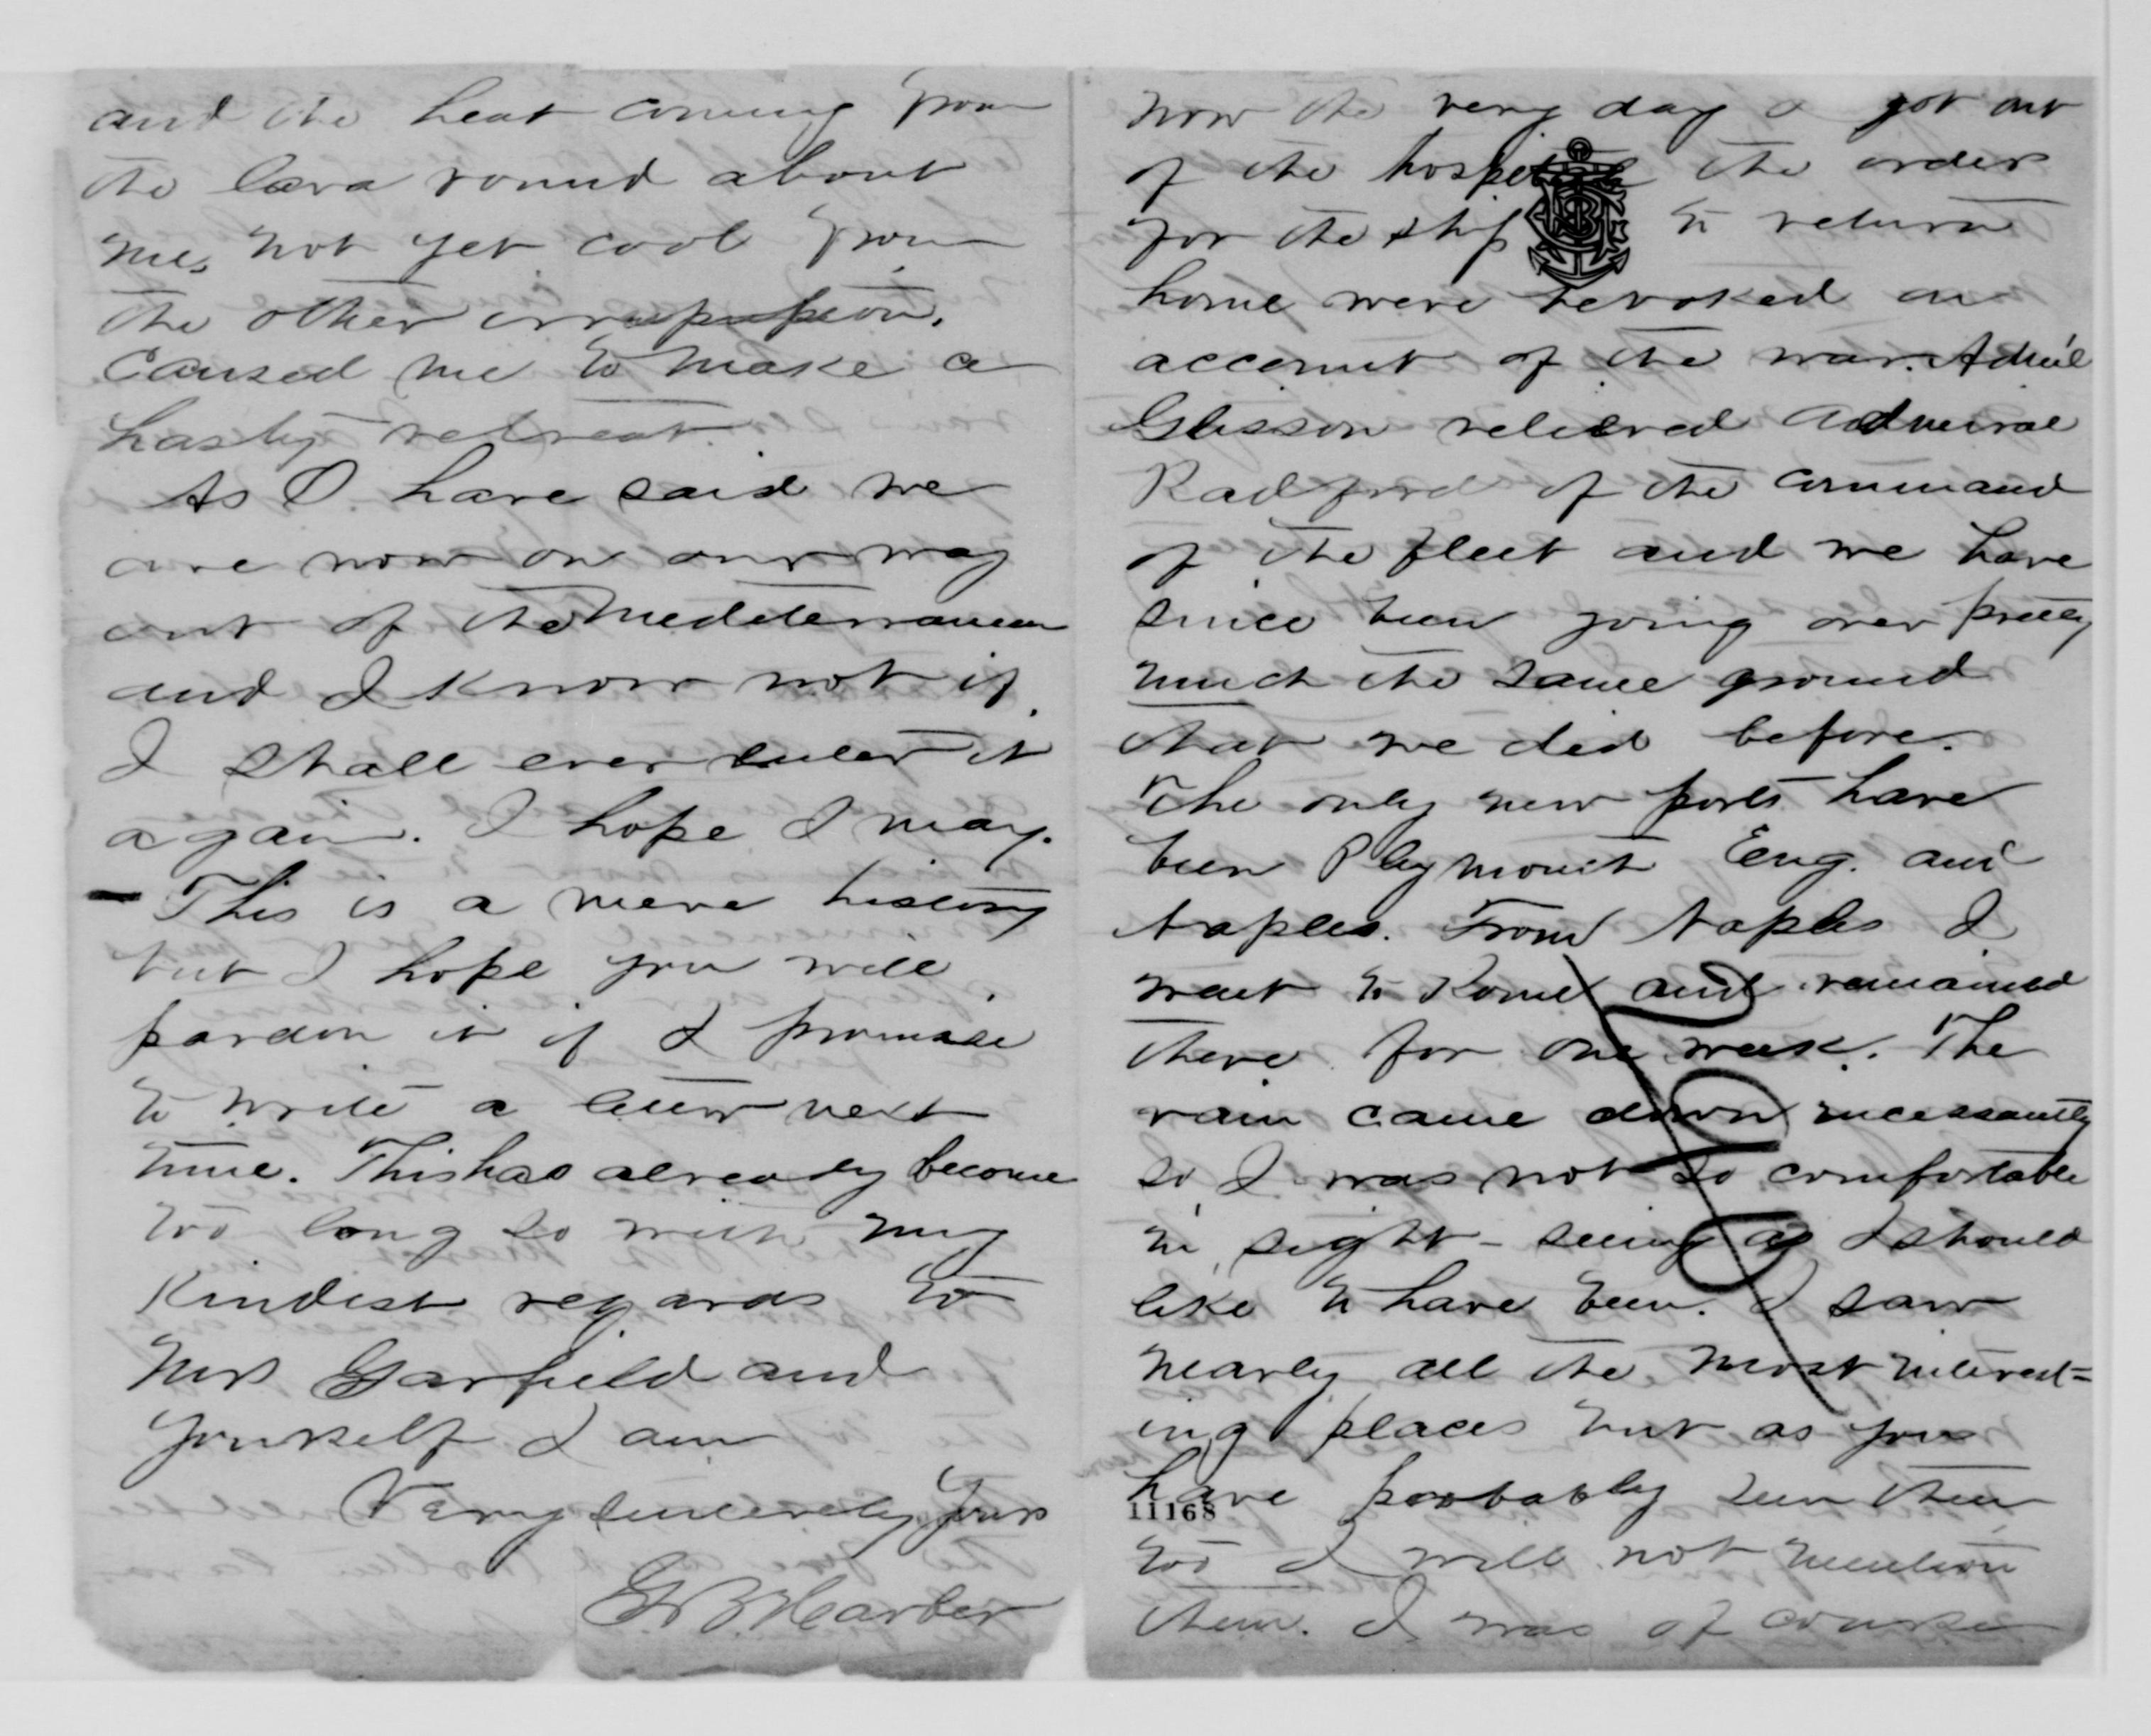 and the heat coming from
the lava round about
me, not yet cool from
the other irruppion,
caused me to make a
hasty retreat.
As I have said we
are now on our way
out of the Mediterranean
and I know not if
I shall ever enter it
again. I hope I may.
- This is a mere history
but I hope you will
pardon it if I promise
to write a letter next
time. This has already become
too long so with my
Kindest regards to
Mrs Garfield and
yourself I am
Very sincerely yours
G. B. Harber
now the very day I got out
of the hospital the orders
for the ship to return
home were revoked on
account of the war. Adm'l
Glisson relieved Admiral
Radford of the command
of the fleet and we have
since been going over pretty
much the same ground
that we did before.
The only new ports have
been Plymouth Eng. and
Naples. From Naples I
went to Rome and remained
there for one week. The
rain came down incessantly
so I was not so comfortable
in sight-seeing as I should
like to have been. I saw
nearly all the most interest=
ing places but as you
have probably seen them
11168
too I will not mention
them. I was of course